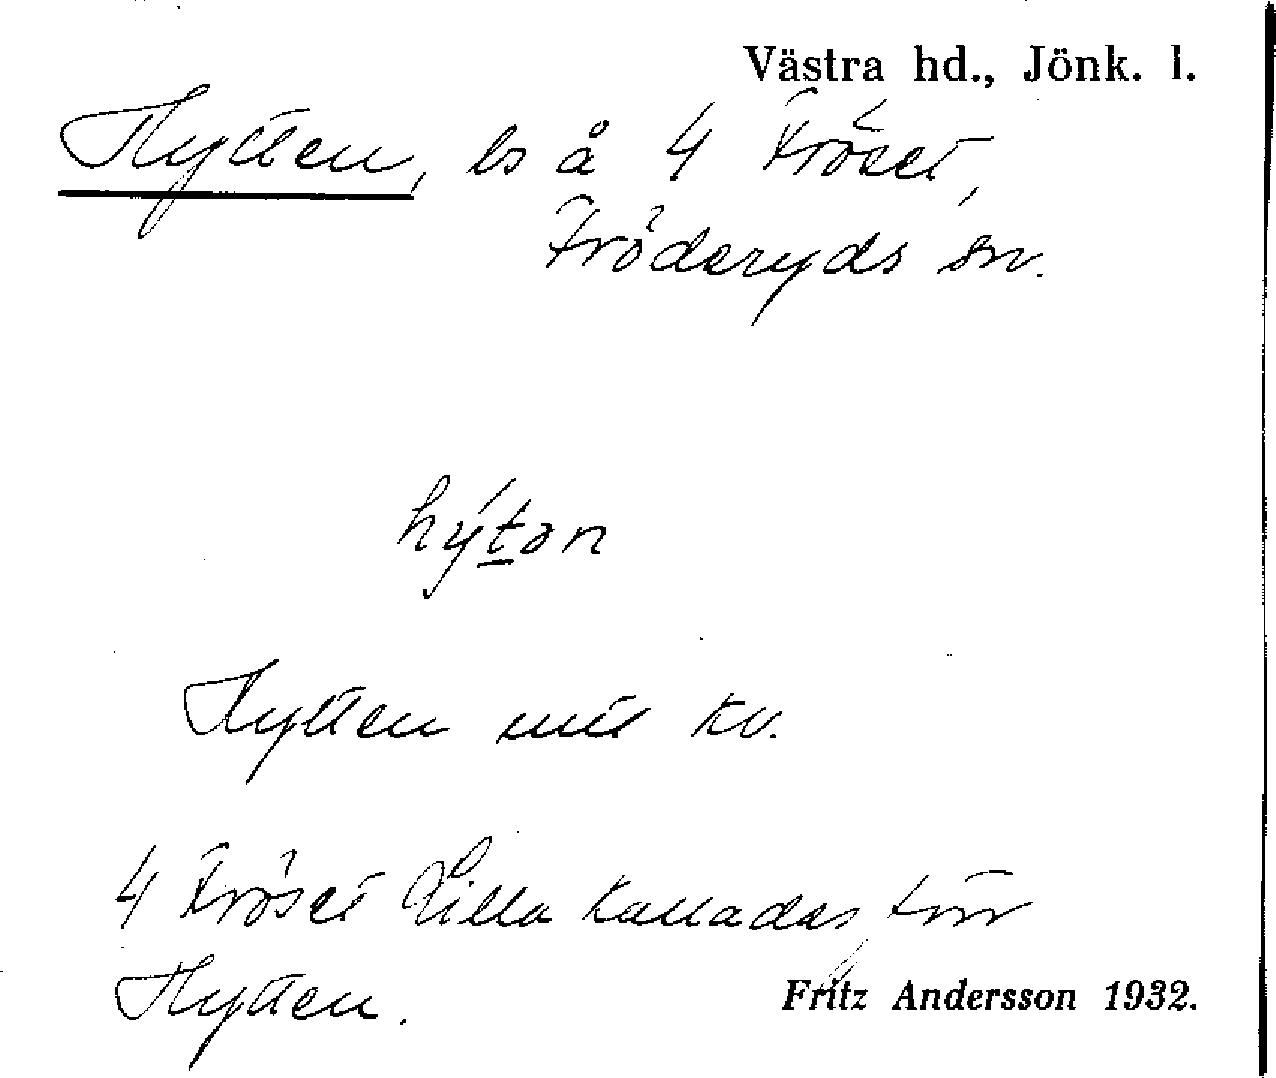 Västra hd., Jönk. l.
Hytten, ls å 4 Fröset,
Fröderyds sn.
hýt̲ən
Hytten utt kv.
4 Fröset Lilla kallades förr
Hytten.
Fritz Andersson 1932.